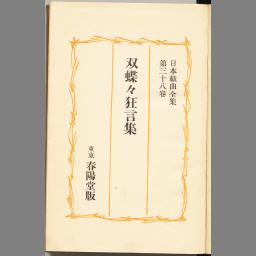 日本戯曲全集
第三十八巻
双蝶々狂言集
東京 春陽堂版